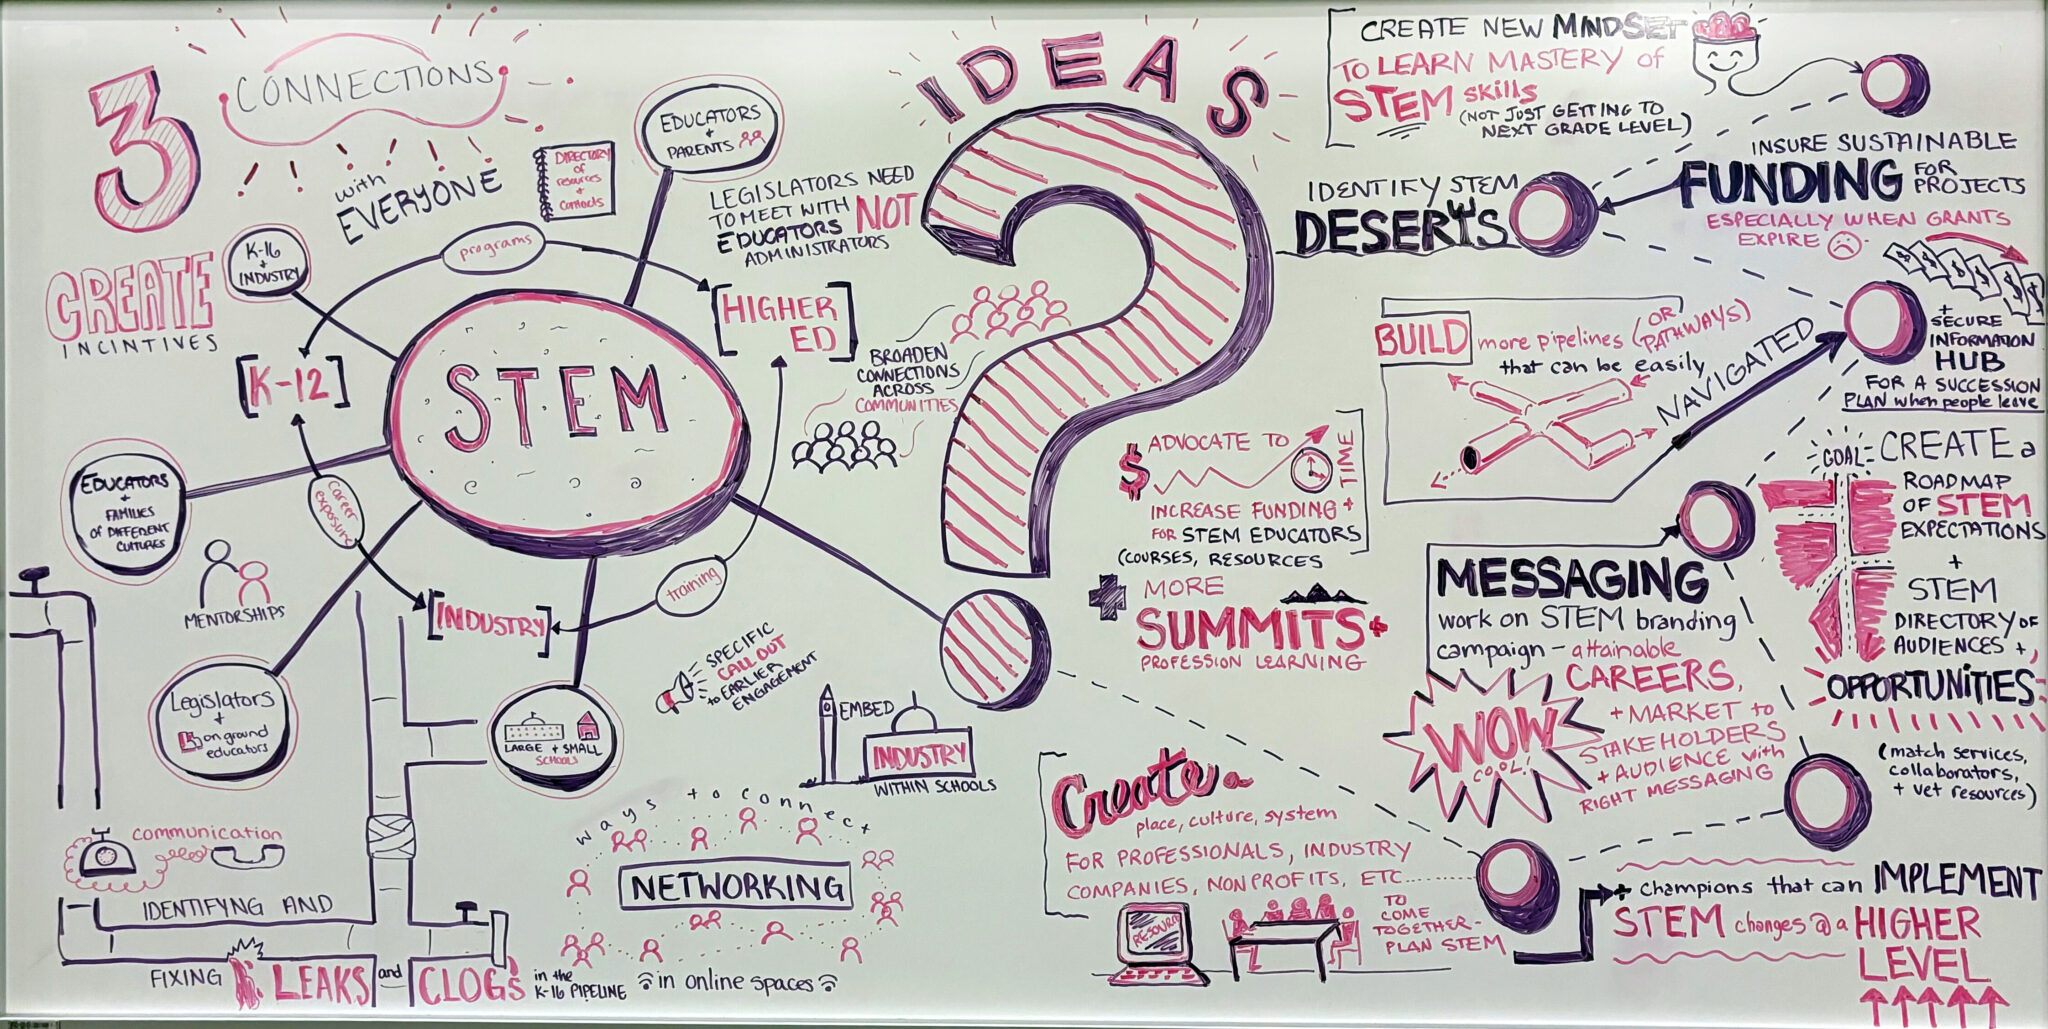 3
CONNECTIONS
with
EVERYONE
DIRECTORY
of
resources
+
contacts
CREATE
INCINTIVES
K-16
+
INDUSTRY
EDUCATORS
+
PARENTS
programs
LEGISLATORS NEED
TO MEET WITH
EDUCATORS NOT
ADMINISTRATORS
[HIGHER
ED]
[K-12]
STEM
BROADEN
CONNECTIONS
ACROSS
COMMUNITIES
EDUCATORS
+
FAMILIES
OF DIFFERENT
CULTURES
career
exposure
MENTORSHIPS
[INDUSTRY]
training
Legislators
+
on ground
educators
LARGE + SMALL
SCHOOLS
SPECIFIC
CALL OUT
to EARLIER
ENGAGEMENT
EMBED
INDUSTRY
WITHIN SCHOOLS
communication
ways to connect
NETWORKING
in online spaces
IDENTIFYNG AND
FIXING LEAKS and CLOGS in the
K-16 PIPELINE
IDEAS
?
CREATE NEW MINDSET
TO LEARN MASTERY of
STEM skills
(NOT JUST GETTING TO
NEXT GRADE LEVEL)
IDENTIFY STEM
DESERTS
INSURE SUSTAINABLE
FUNDING FOR
PROJECTS
ESPECIALLY WHEN GRANTS
EXPIRE
$ $ $ $ $
BUILD more pipelines (OR
PATHWAYS)
that can be easily
NAVIGATED
+
SECURE
INFORMATION
HUB
FOR A SUCCESSION
PLAN when people leave
$ ADVOCATE TO
INCREASE FUNDING + TIME
FOR STEM EDUCATORS
(COURSES, RESOURCES
+ MORE
SUMMITS +
PROFESSION LEARNING
GOAL: CREATE a
ROADMAP
OF STEM
EXPECTATIONS
+
STEM
DIRECTORY OF
AUDIENCES +
OPPORTUNITIES
(match services,
collaborators,
+ vet resources)
MESSAGING
work on STEM branding
campaign - attainable
CAREERS,
+ MARKET to
STAKEHOLDERS
+ AUDIENCE with
RIGHT MESSAGING
WOW
COOL!
Create a
place, culture, system
FOR PROFESSIONALS, INDUSTRY
COMPANIES, NONPROFITS, ETC
TO
COME
TOGETHER-
PLAN STEM
RESOURCE
+ champions that can IMPLEMENT
STEM changes @ a HIGHER
LEVEL